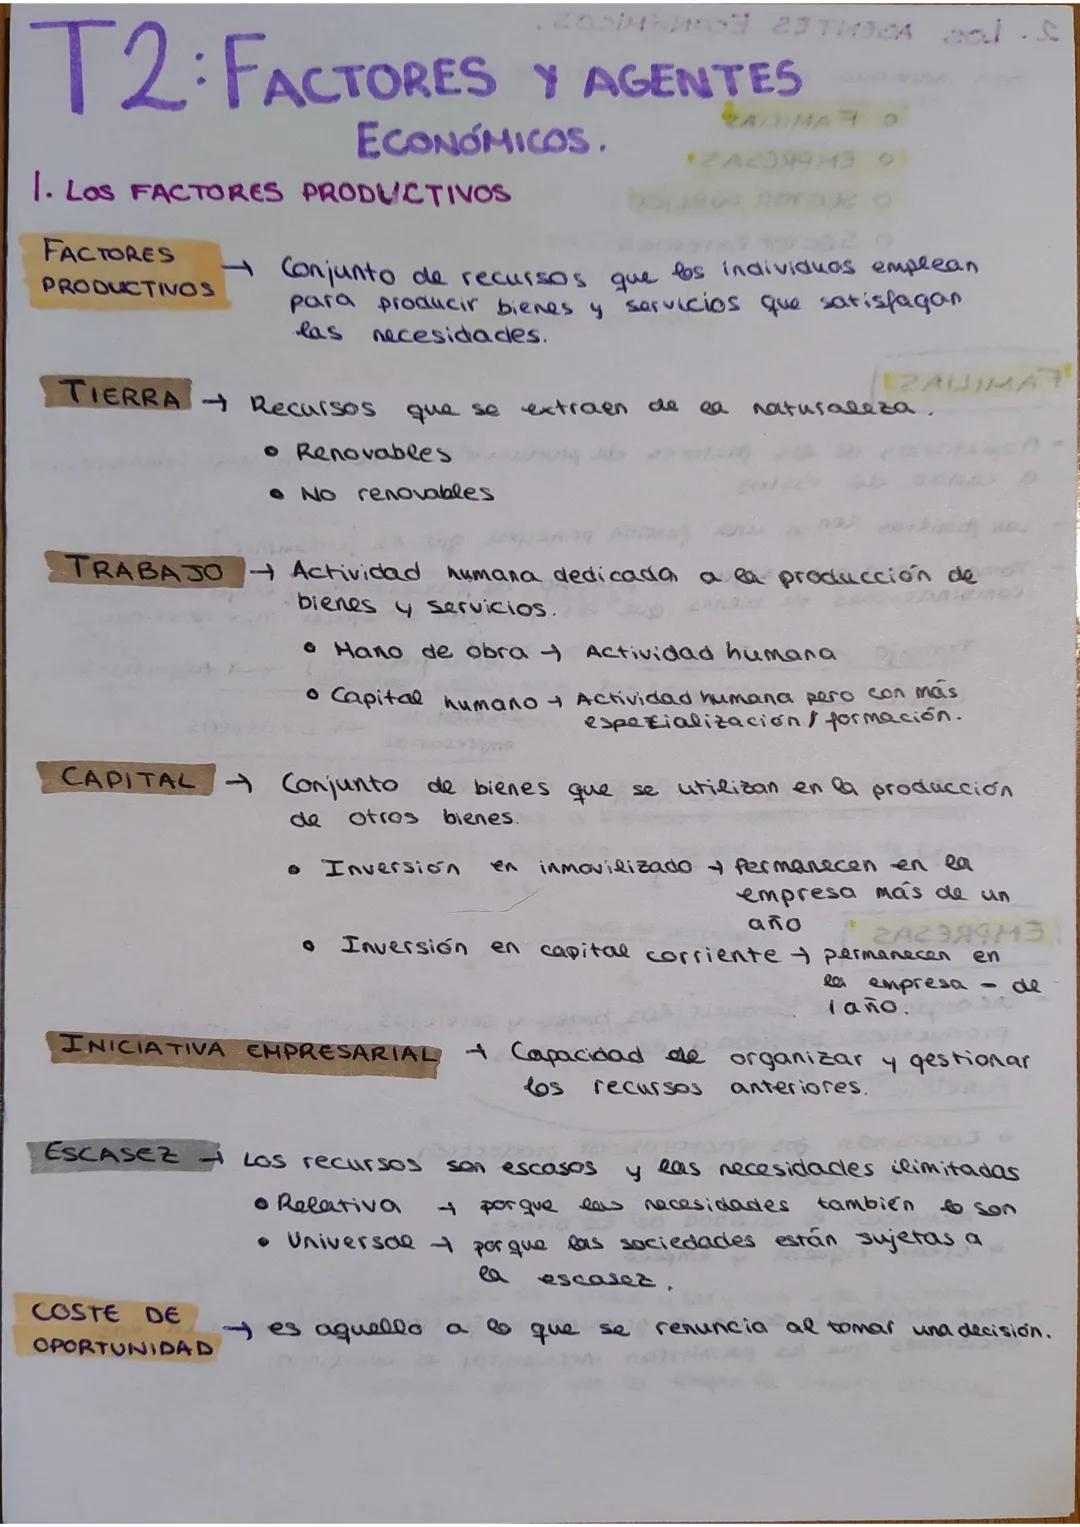 T2: FACTORES Y AGENTES
ECONÓMICOS.
1. LOS FACTORES PRODUCTIVOS
FACTORES
PRODUCTIVOS → Conjunto de recursos que los individuos emplean
para producir bienes y servicios que satisfagan
las necesidades.
TIERRA → Recursos que se extraen de la naturaleza.
• Renovables
• No renovables
TRABAJO → Actividad humana dedicada a la producción de
bienes y servicios.
• Mano de obra → Actividad humana
• Capital humano → Actividad humana pero con más
especialización / formación.
CAPITAL → Conjunto de bienes que se utilizan en la producción
de otros bienes.
• Inversión en inmovilizado → Permanecen en la
empresa más de un
año
• Inversión en capital corriente → permanecen en
la empresa - de
1 año.
INICIATIVA EMPRESARIAL → Capacidad de organizar y gestionar
los recursos anteriores.
ESCASEZ → Los recursos son escasos y las necesidades ilimitadas
• Relativa → porque las necesidades también lo son
• Universal → porque las sociedades están sujetas a
la escasez.
COSTE DE
OPORTUNIDAD → es aquello a lo que se renuncia al tomar una decisión.
2. LOS AGENTES ECONÓMICOS.
o FAMILIAS
o EMPRESAS
o SECTOR PÚBLICO
FAMILIAS
EMPRESAS